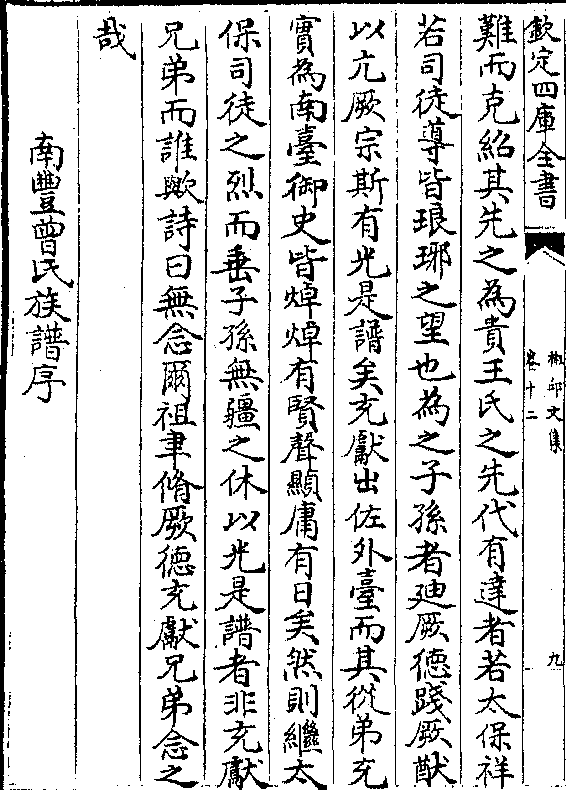 欽定四庫全書
椒邱文集
卷十二
九
難而克紹其先之為貴王氏之先代有達者若太保祥
若司徒導皆琅琊之望也為之子孫者廸厥德踐厥猷
以亢厥宗斯有光是譜矣充獻出佐外臺而其從弟充
實為南臺御史皆焯焯有賢聲顯庸有日矣然則繼太
保司徒之烈而垂子孫無疆之休以光是譜者非充獻
兄弟而誰歟詩曰無念爾祖聿脩厥德充獻兄弟念之
哉
南豐曾氏族譜序